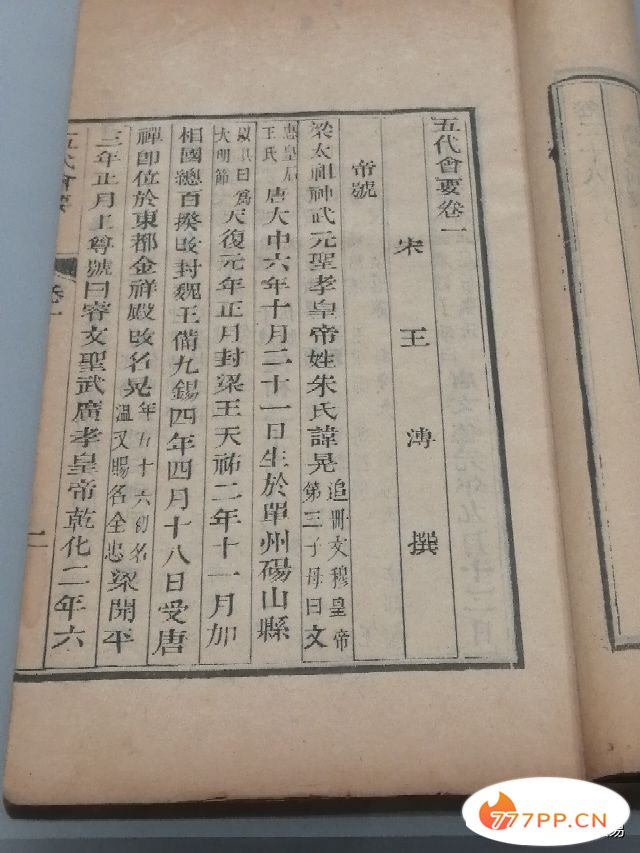 五代會要卷一
宋王溥撰
帝號
梁太祖神武元聖孝皇帝姓朱氏諱晃追冊文穆皇帝第三子母曰文
惠皇后王氏唐大中六年十月二十一日生於單州碭山縣
以其日爲大明節天復元年正月封梁王天祐二年十一月加
相國總百揆改封魏王備九錫四年四月十八日受唐
禪卽位於東都金祥殿改名晃年五十六初名溫又賜名全忠梁開平
三年正月上尊號曰睿文聖武廣孝皇帝乾化二年六
五代會要 卷一
777PP.CN
易